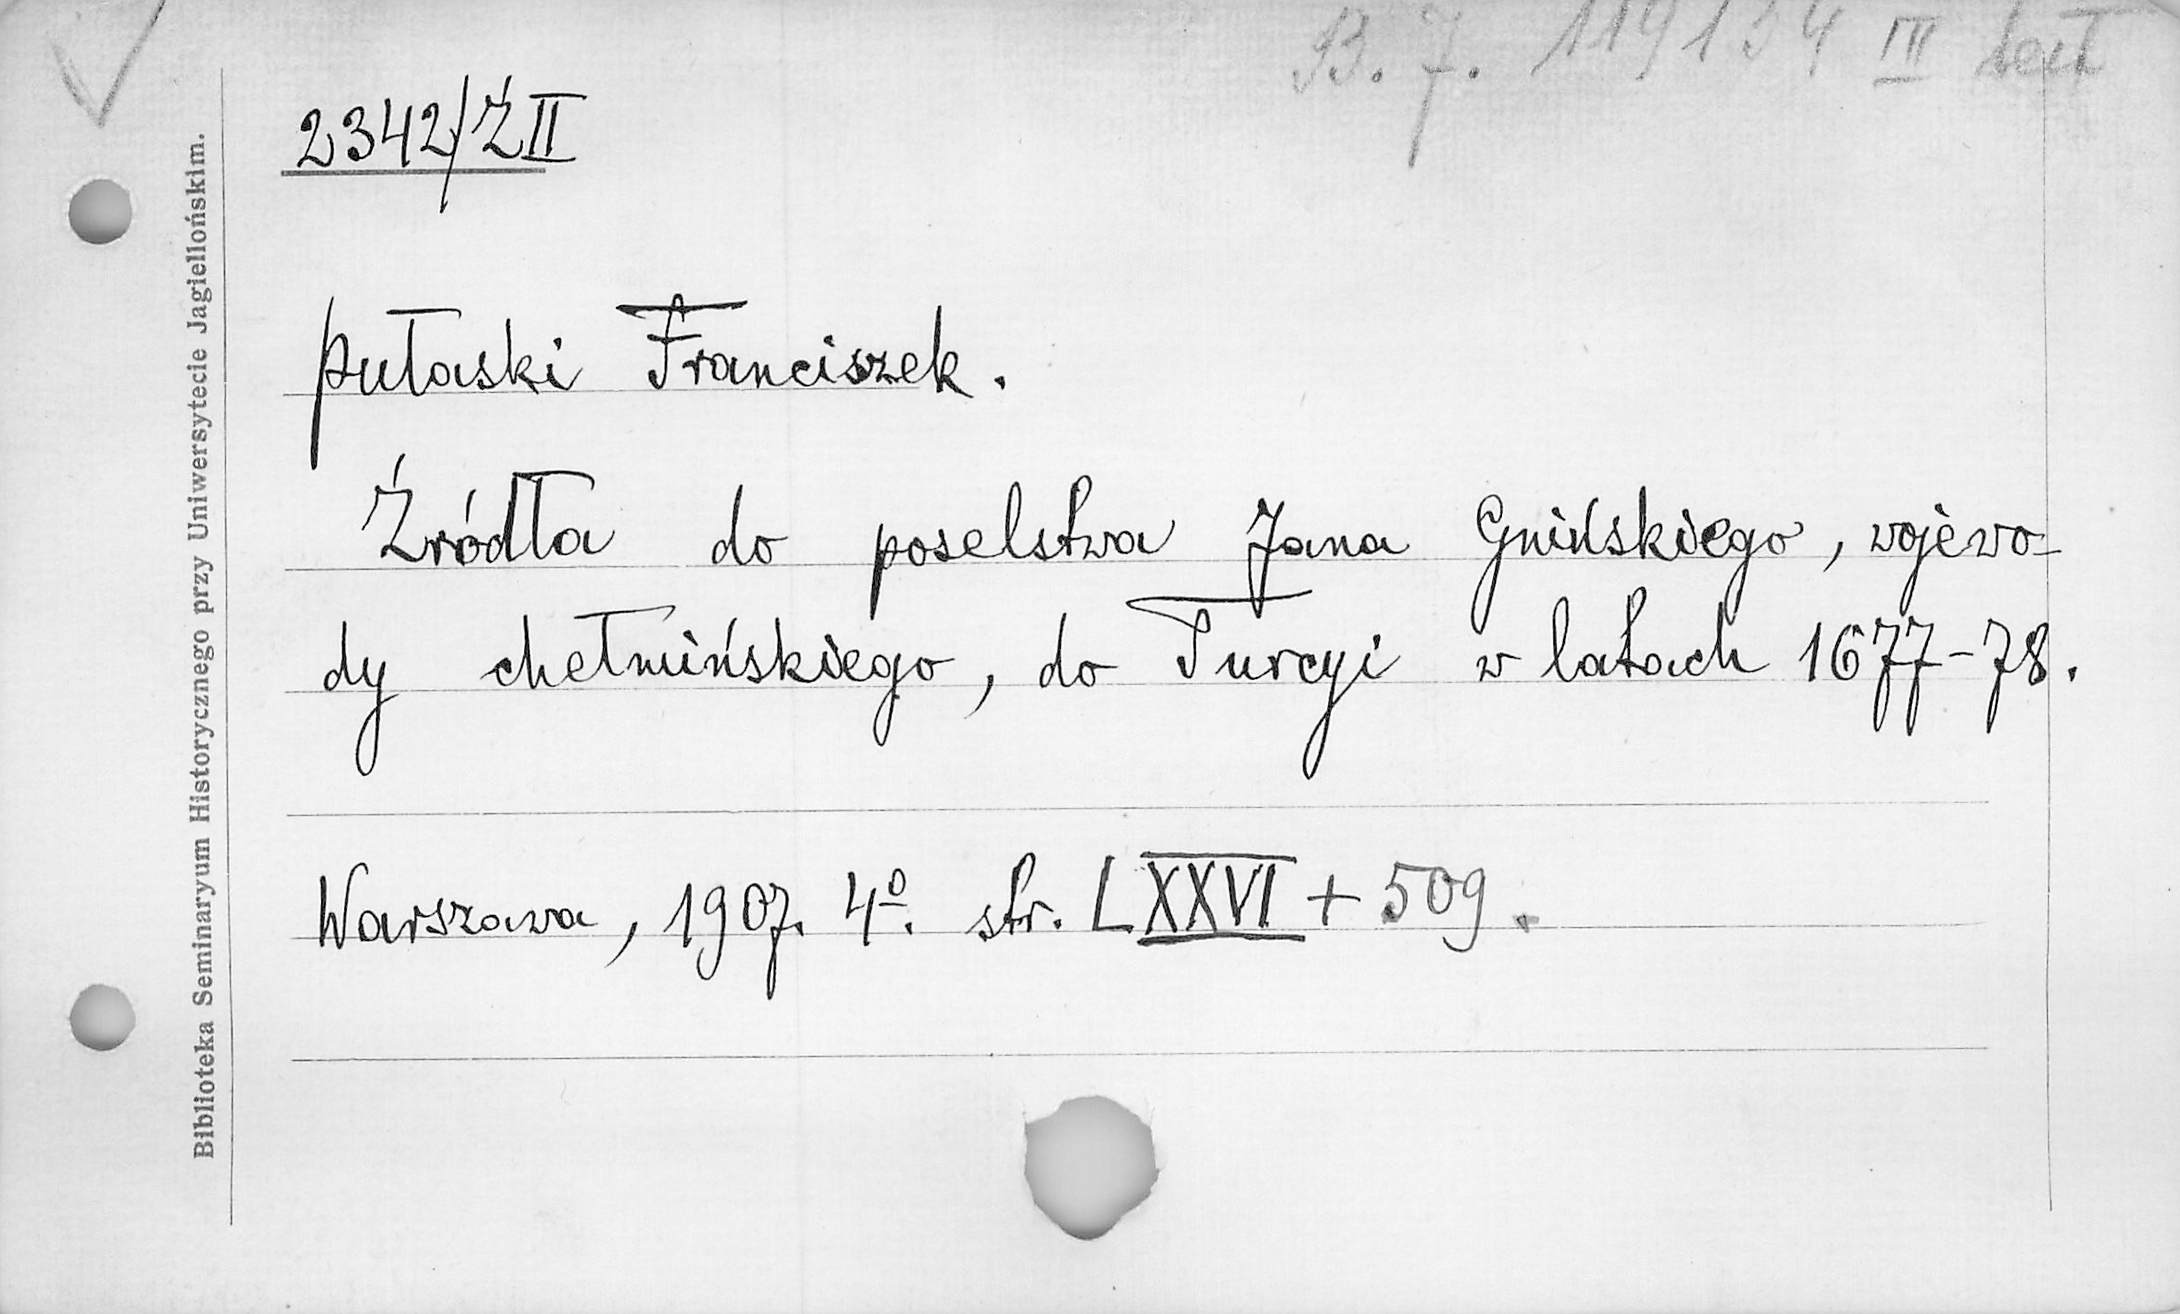 B. J. 119134 III
2342/Ż II
Pułaski Franciszek.
Źródła do poselstwa Jana Gnińskiego, wojewo-
dy chełmińskiego, do Turcyi w latach 1677-78.
Warszawa, 1907. 4º. str. LXXVI + 509.
Biblioteka Seminaryum Historycznego przy Uniwersytecie Jagiellońskim.